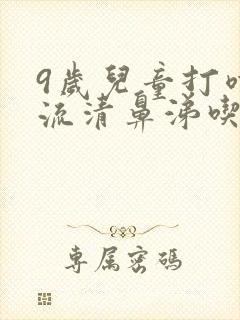 9歲兒童打
流清鼻涕喫
專属密碼